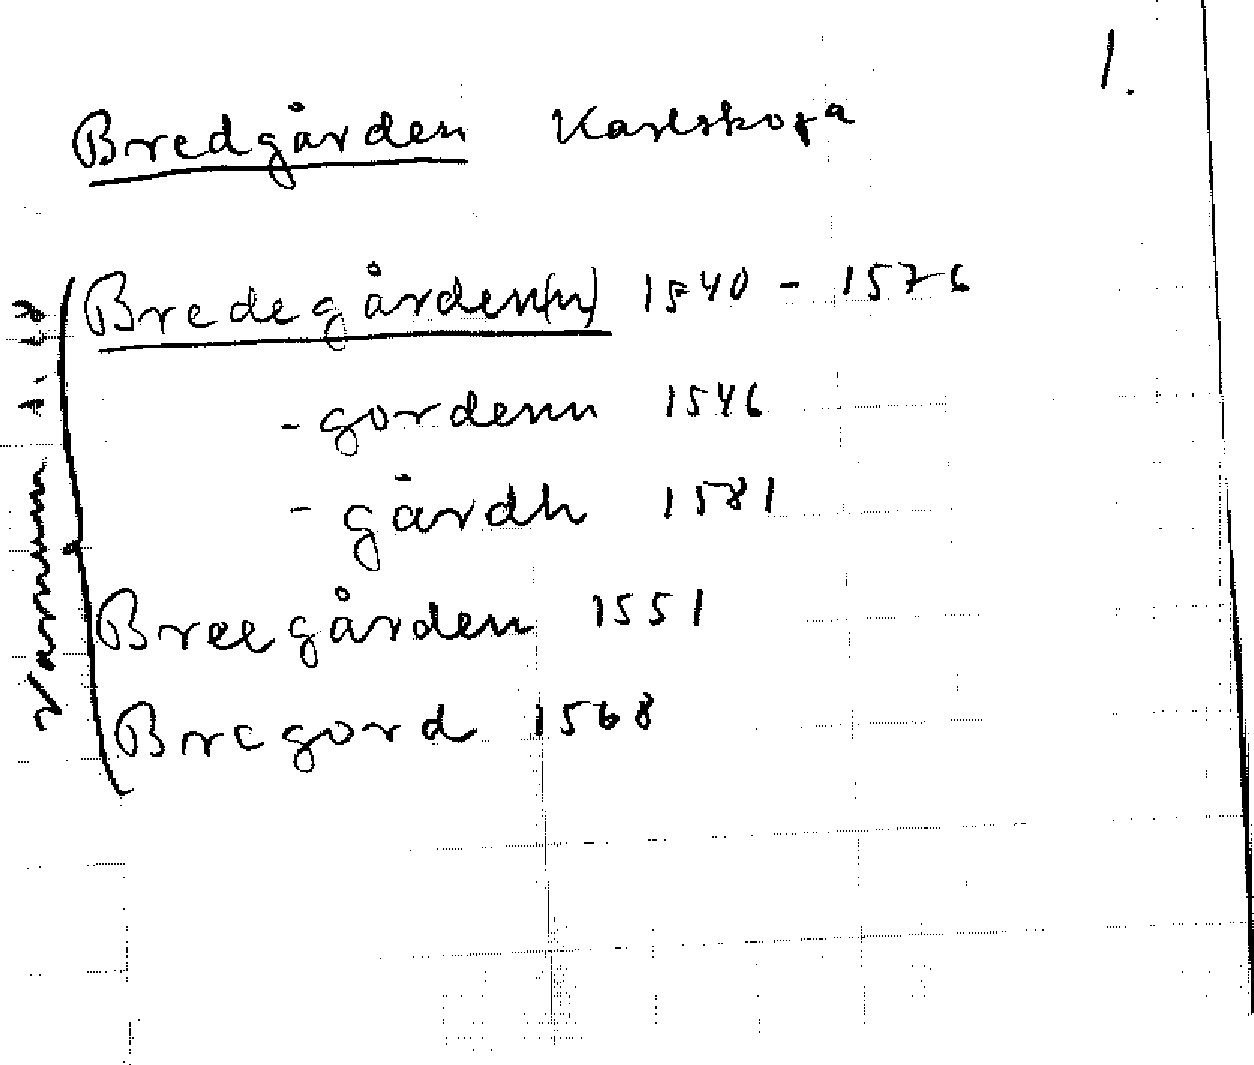 1.
Bredgården Karlskoga
Bredegården(n) 1540 - 1576
- gordenn 1546
- gårdh 1581
Breegården 1551
Bregord 1568